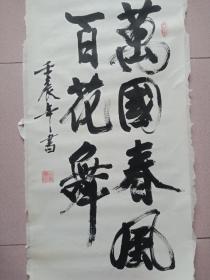 萬國春風
百花舞
壬辰年書